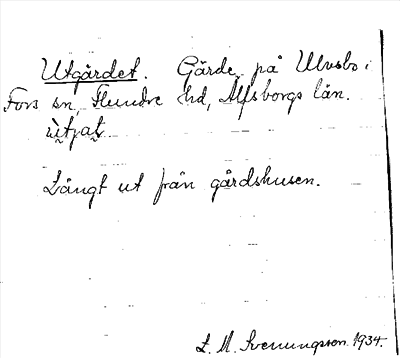 Utgärdet. Gärde på Ulvsbo i
Fors sn, Flundre hd, Älfsborgs län.
Långt ut från gårdshusen.
L. M. Svenungsson. 1934.